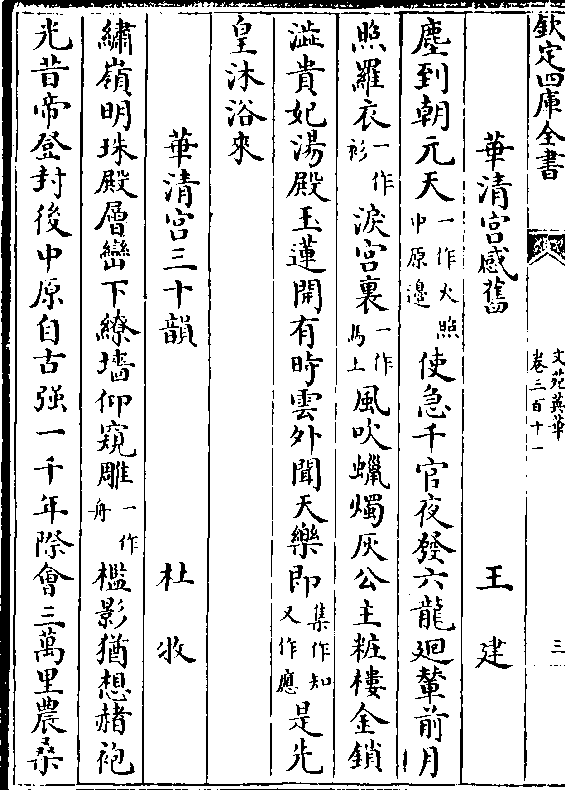 欽定四庫全書
文苑英華
卷三百十一
三
華清宮感舊
王建
塵到朝元天一作火照中原邊使急千官夜發六龍廻輦前月
照羅衣一作衫淚宮裏一作馬上風吹蠟燭灰公主粧樓金鎖
澁貴妃湯殿玉蓮開有時雲外聞天樂即集作知又作應是先
皇沐浴來
華清宮三十韻
杜牧
繡嶺明珠殿層巒下繚墻仰窺雕一作舟檻影猶想赭袍
光昔帝登封後中原自古强一千年際會三萬里農桑